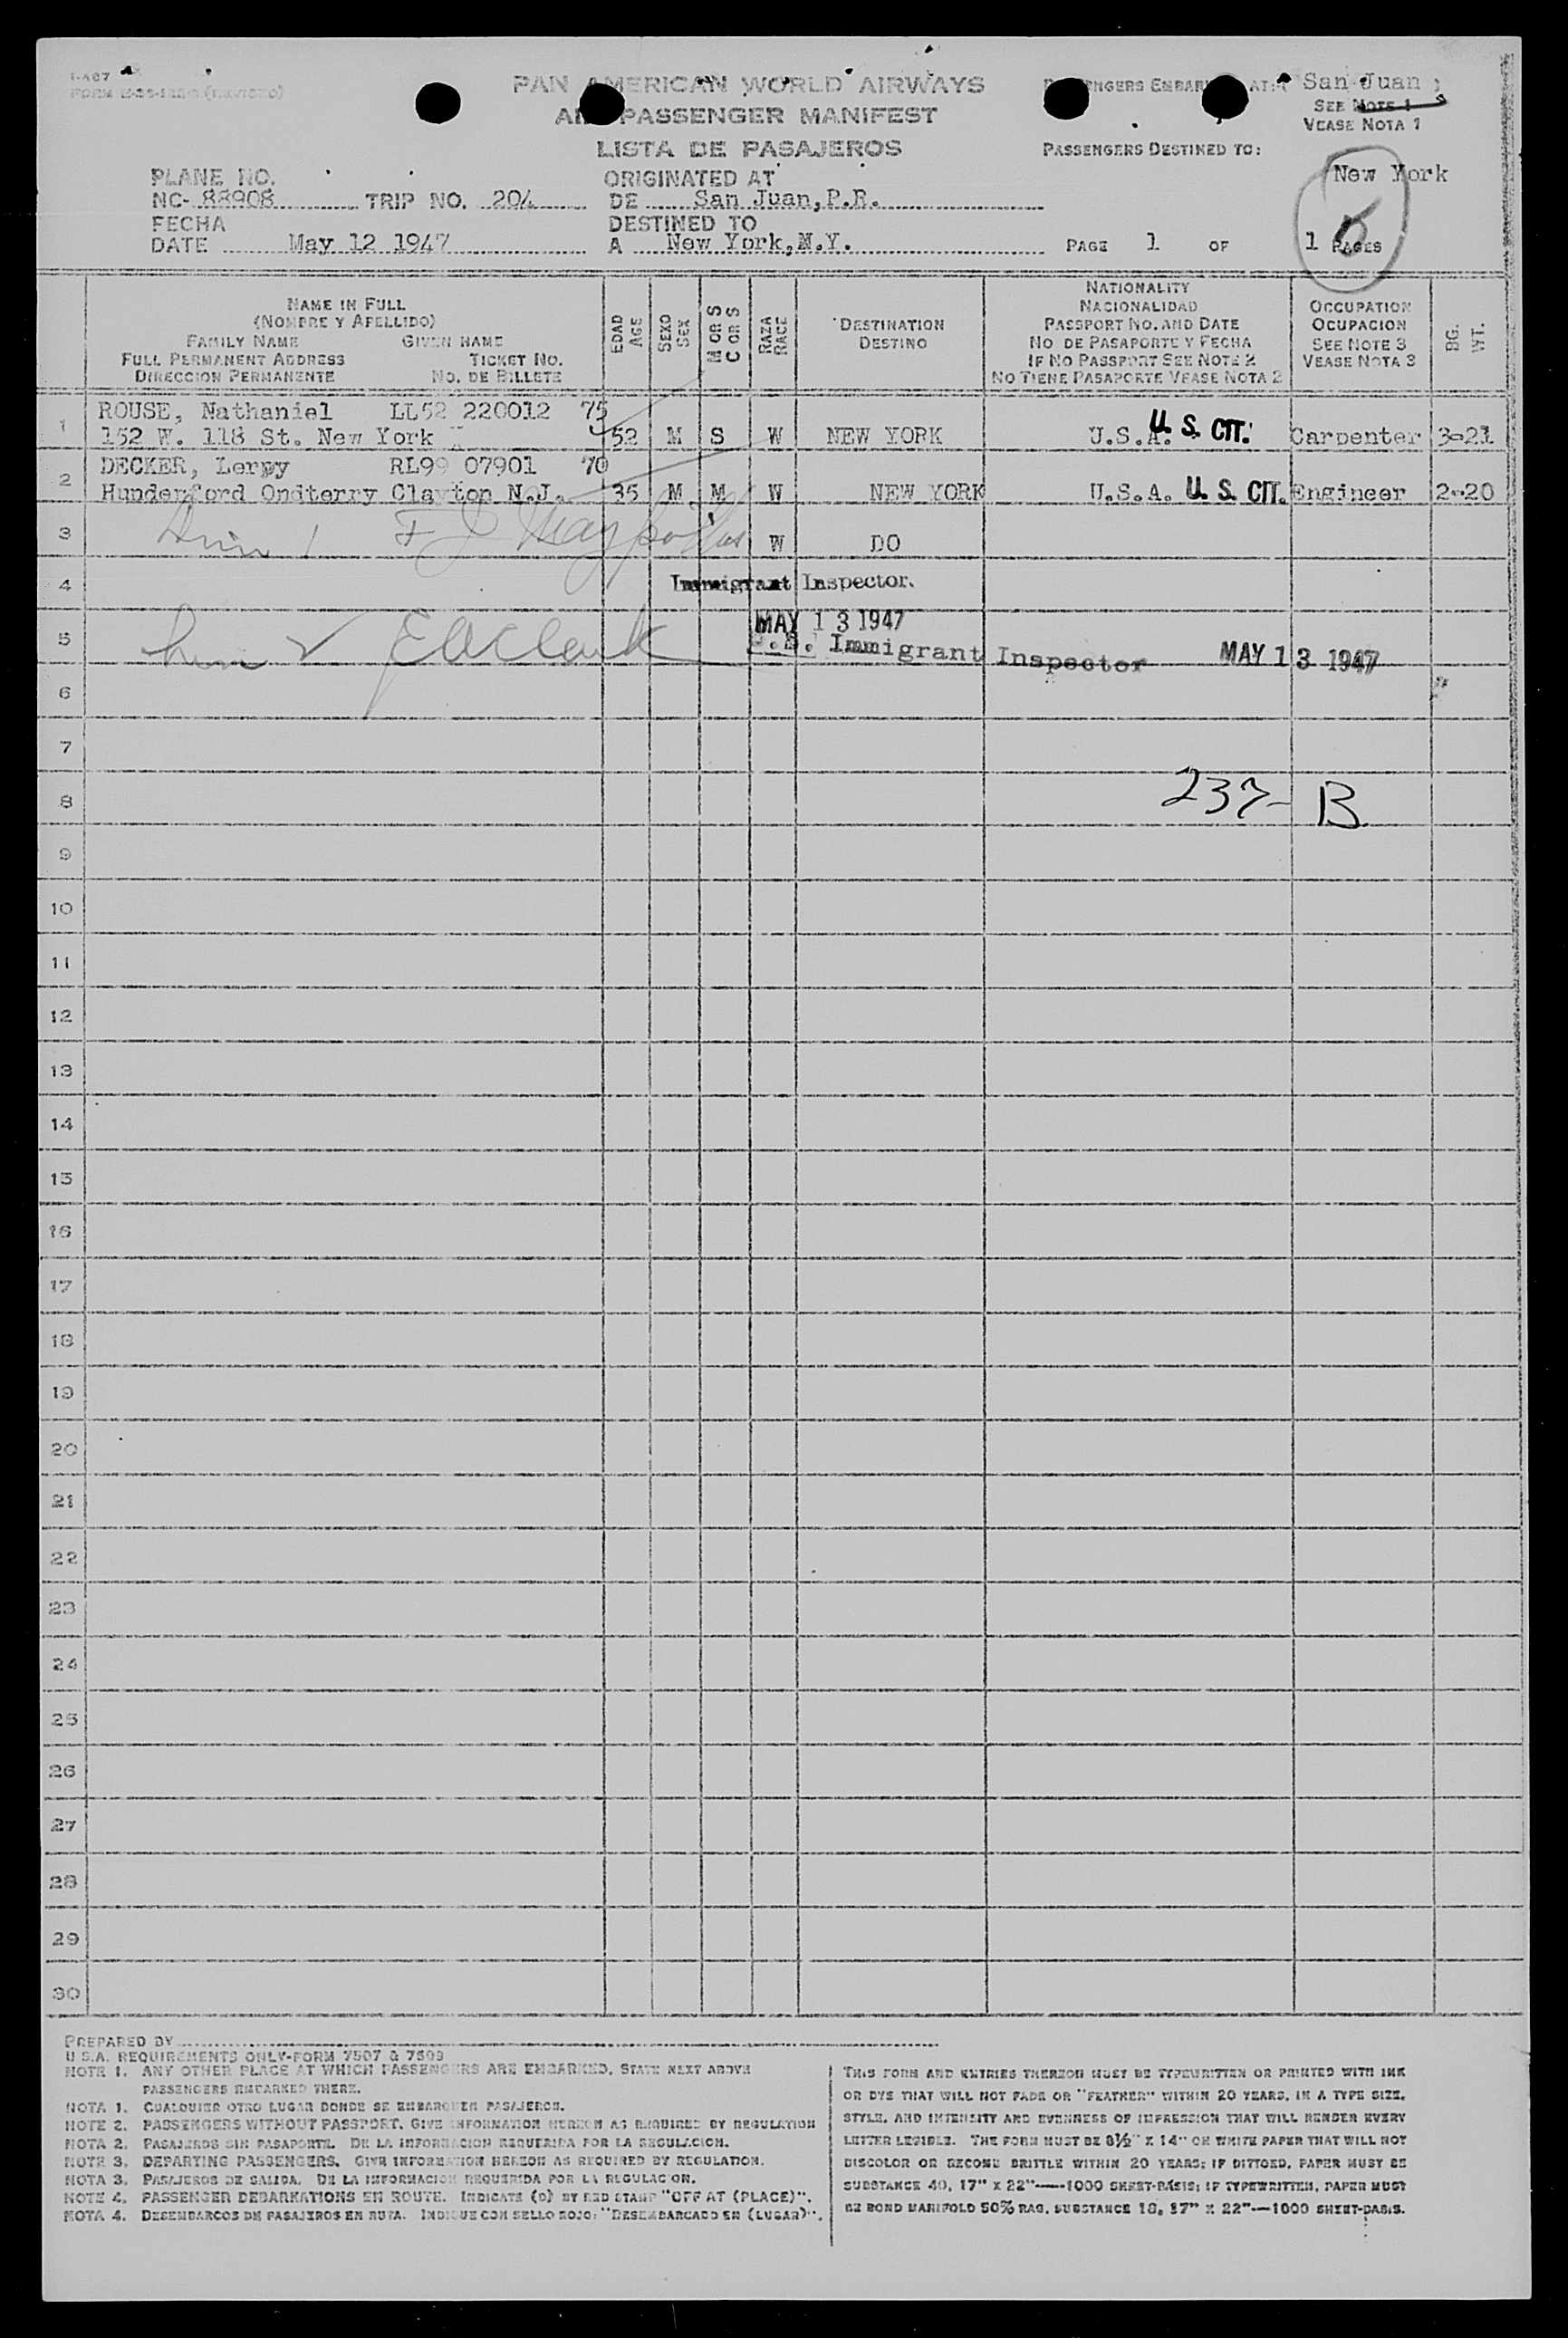 I-467
PAN AMERICAN WORLD AIRWAYS
PASSENGER MANIFEST
LISTA DE PASAJEROS
AT: San Juan
SEE NOTE 1
VEASE NOTA 1
PASSENGERS DESTINED TO:
New York
PLANE NO.
NC- 88908 TRIP NO. 204
ORIGINATED AT
DE San Juan, P.R.
FECHA
DATE May 12 1947
DESTINED TO
A New York, N.Y.
PAGE 1 OF 1 PAGES
NAME IN FULL
(NOMBRE Y APELLIDO)
FAMILY NAME GIVEN NAME
FULL PERMANENT ADDRESS TICKET NO.
DIRECCION PERMANENTE NO. DE BILLETE
EDAD
AGE
SEXO
SEX
M OR S
C OR S
RAZA
RACE
DESTINATION
DESTINO
NATIONALITY
NACIONALIDAD
PASSPORT NO. AND DATE
NO DE PASAPORTE Y FECHA
IF NO PASSPORT SEE NOTE 2
NO TIENE PASAPORTE VEASE NOTA 2
OCCUPATION
OCUPACION
SEE NOTE 3
VEASE NOTA 3
BG.
WT.
1 ROUSE, Nathaniel LL52 220012 75
152 W. 118 St. New York 52 M S W NEW YORK U.S.A. U. S. CIT. Carpenter 3-21
2 DECKER, Leroy RL99 07901 70
Hunderford Ondterry Clayton N.J. 35 M M W NEW YORK U.S.A. U. S. CIT. Engineer 2-20
3 W DO
4 Immigrant Inspector.
MAY 13 1947
5 E A Clark
U.S. Immigrant Inspector MAY 13 1947
6
7
8 237- B
9
10
11
12
13
14
15
16
17
18
19
20
21
22
23
24
25
26
27
28
29
30
PREPARED BY
U.S.A. REQUIREMENTS ONLY-FORM 7507 & 7509
NOTE 1. ANY OTHER PLACE AT WHICH PASSENGERS ARE EMBARKED, STATE NEXT ABOVE
PASSENGERS EMBARKED THERE.
NOTA 1. CUALQUIER OTRO LUGAR DONDE SE EMBARQUEN PASAJEROS.
NOTE 2. PASSENGERS WITHOUT PASSPORT. GIVE INFORMATION HEREON AS REQUIRED BY REGULATION
NOTA 2. PASAJEROS SIN PASAPORTE. DE LA INFORMACION REQUERIDA POR LA REGULACION.
NOTE 3. DEPARTING PASSENGERS. GIVE INFORMATION HEREON AS REQUIRED BY REGULATION.
NOTA 3. PASAJEROS DE SALIDA. DE LA INFORMACION REQUERIDA POR LA REGULACION.
NOTE 4. PASSENGER DEBARKATIONS EN ROUTE. INDICATE (D) BY RED STAMP "OFF AT (PLACE)".
NOTA 4. DESEMBARCOS DE PASAJEROS EN RUTA. INDIQUE CON SELLO ROJO: "DESEMBARCADO EN (LUGAR)".
THIS FORM AND ENTRIES THEREON MUST BE TYPEWRITTEN OR PRINTED WITH INK
OR DYE THAT WILL NOT FADE OR "FEATHER" WITHIN 20 YEARS, IN A TYPE SIZE,
STYLE, AND INTENSITY AND EVENNESS OF IMPRESSION THAT WILL RENDER EVERY
LETTER LEGIBLE. THE FORM MUST BE 8½" X 14" ON WHITE PAPER THAT WILL NOT
DISCOLOR OR BECOME BRITTLE WITHIN 20 YEARS; IF DITTOED, PAPER MUST BE
SUBSTANCE 40, 17" X 22"—1000 SHEET-BASIS; IF TYPEWRITTEN, PAPER MUST
BE BOND MANIFOLD 50% RAG, SUBSTANCE 18, 17" X 22"—1000 SHEET-BASIS.